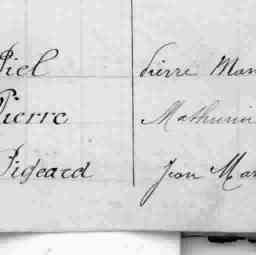 Piel Pierre Mar
Pierre Mathurin
Pigeard Jean Mar